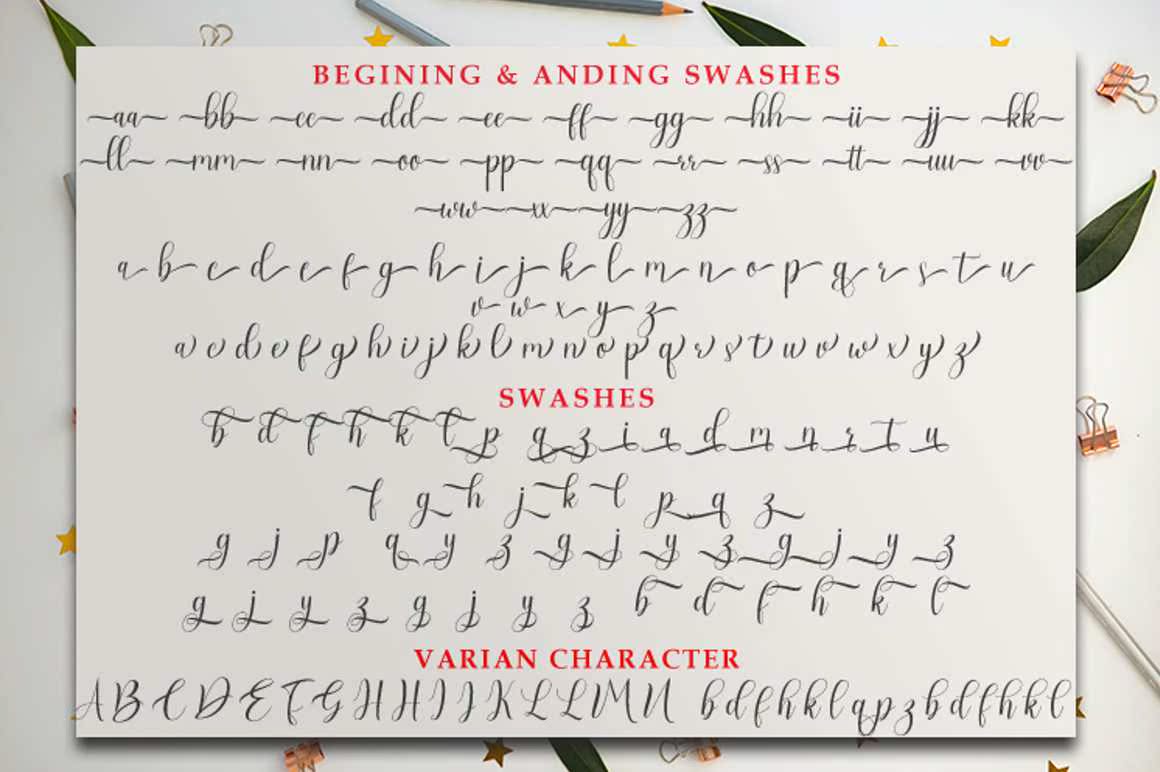 BEGINING & ANDING SWASHES
aa bb cc dd ee ff gg hh ii jj kk
ll mm nn oo pp qq rr ss tt uu vv
ww xx yy zz
a b c d e f g h i j k l m n o p q r s t u
v w x y z
a c d e f g h i j k l m n o p q r s t u v w x y z
SWASHES
b d f h k l p q z i a d m n r t u
f g h j k l p q z
g j p q y z g j y z g j y z
g j y z g j y z b d f h k l
VARIAN CHARACTER
A B C D E F G H H I J K L L M N b d f h k l q p z b d f h k l